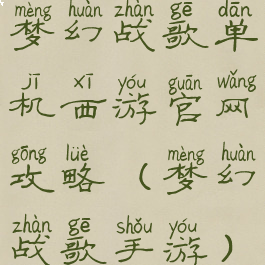 mèng huàn zhàn gē dān
梦幻战歌单
jī xī yóu guān wǎng
机西游官网
gōng lüè mèng huàn
攻略（梦幻
zhàn gē shǒu yóu
战歌手游）